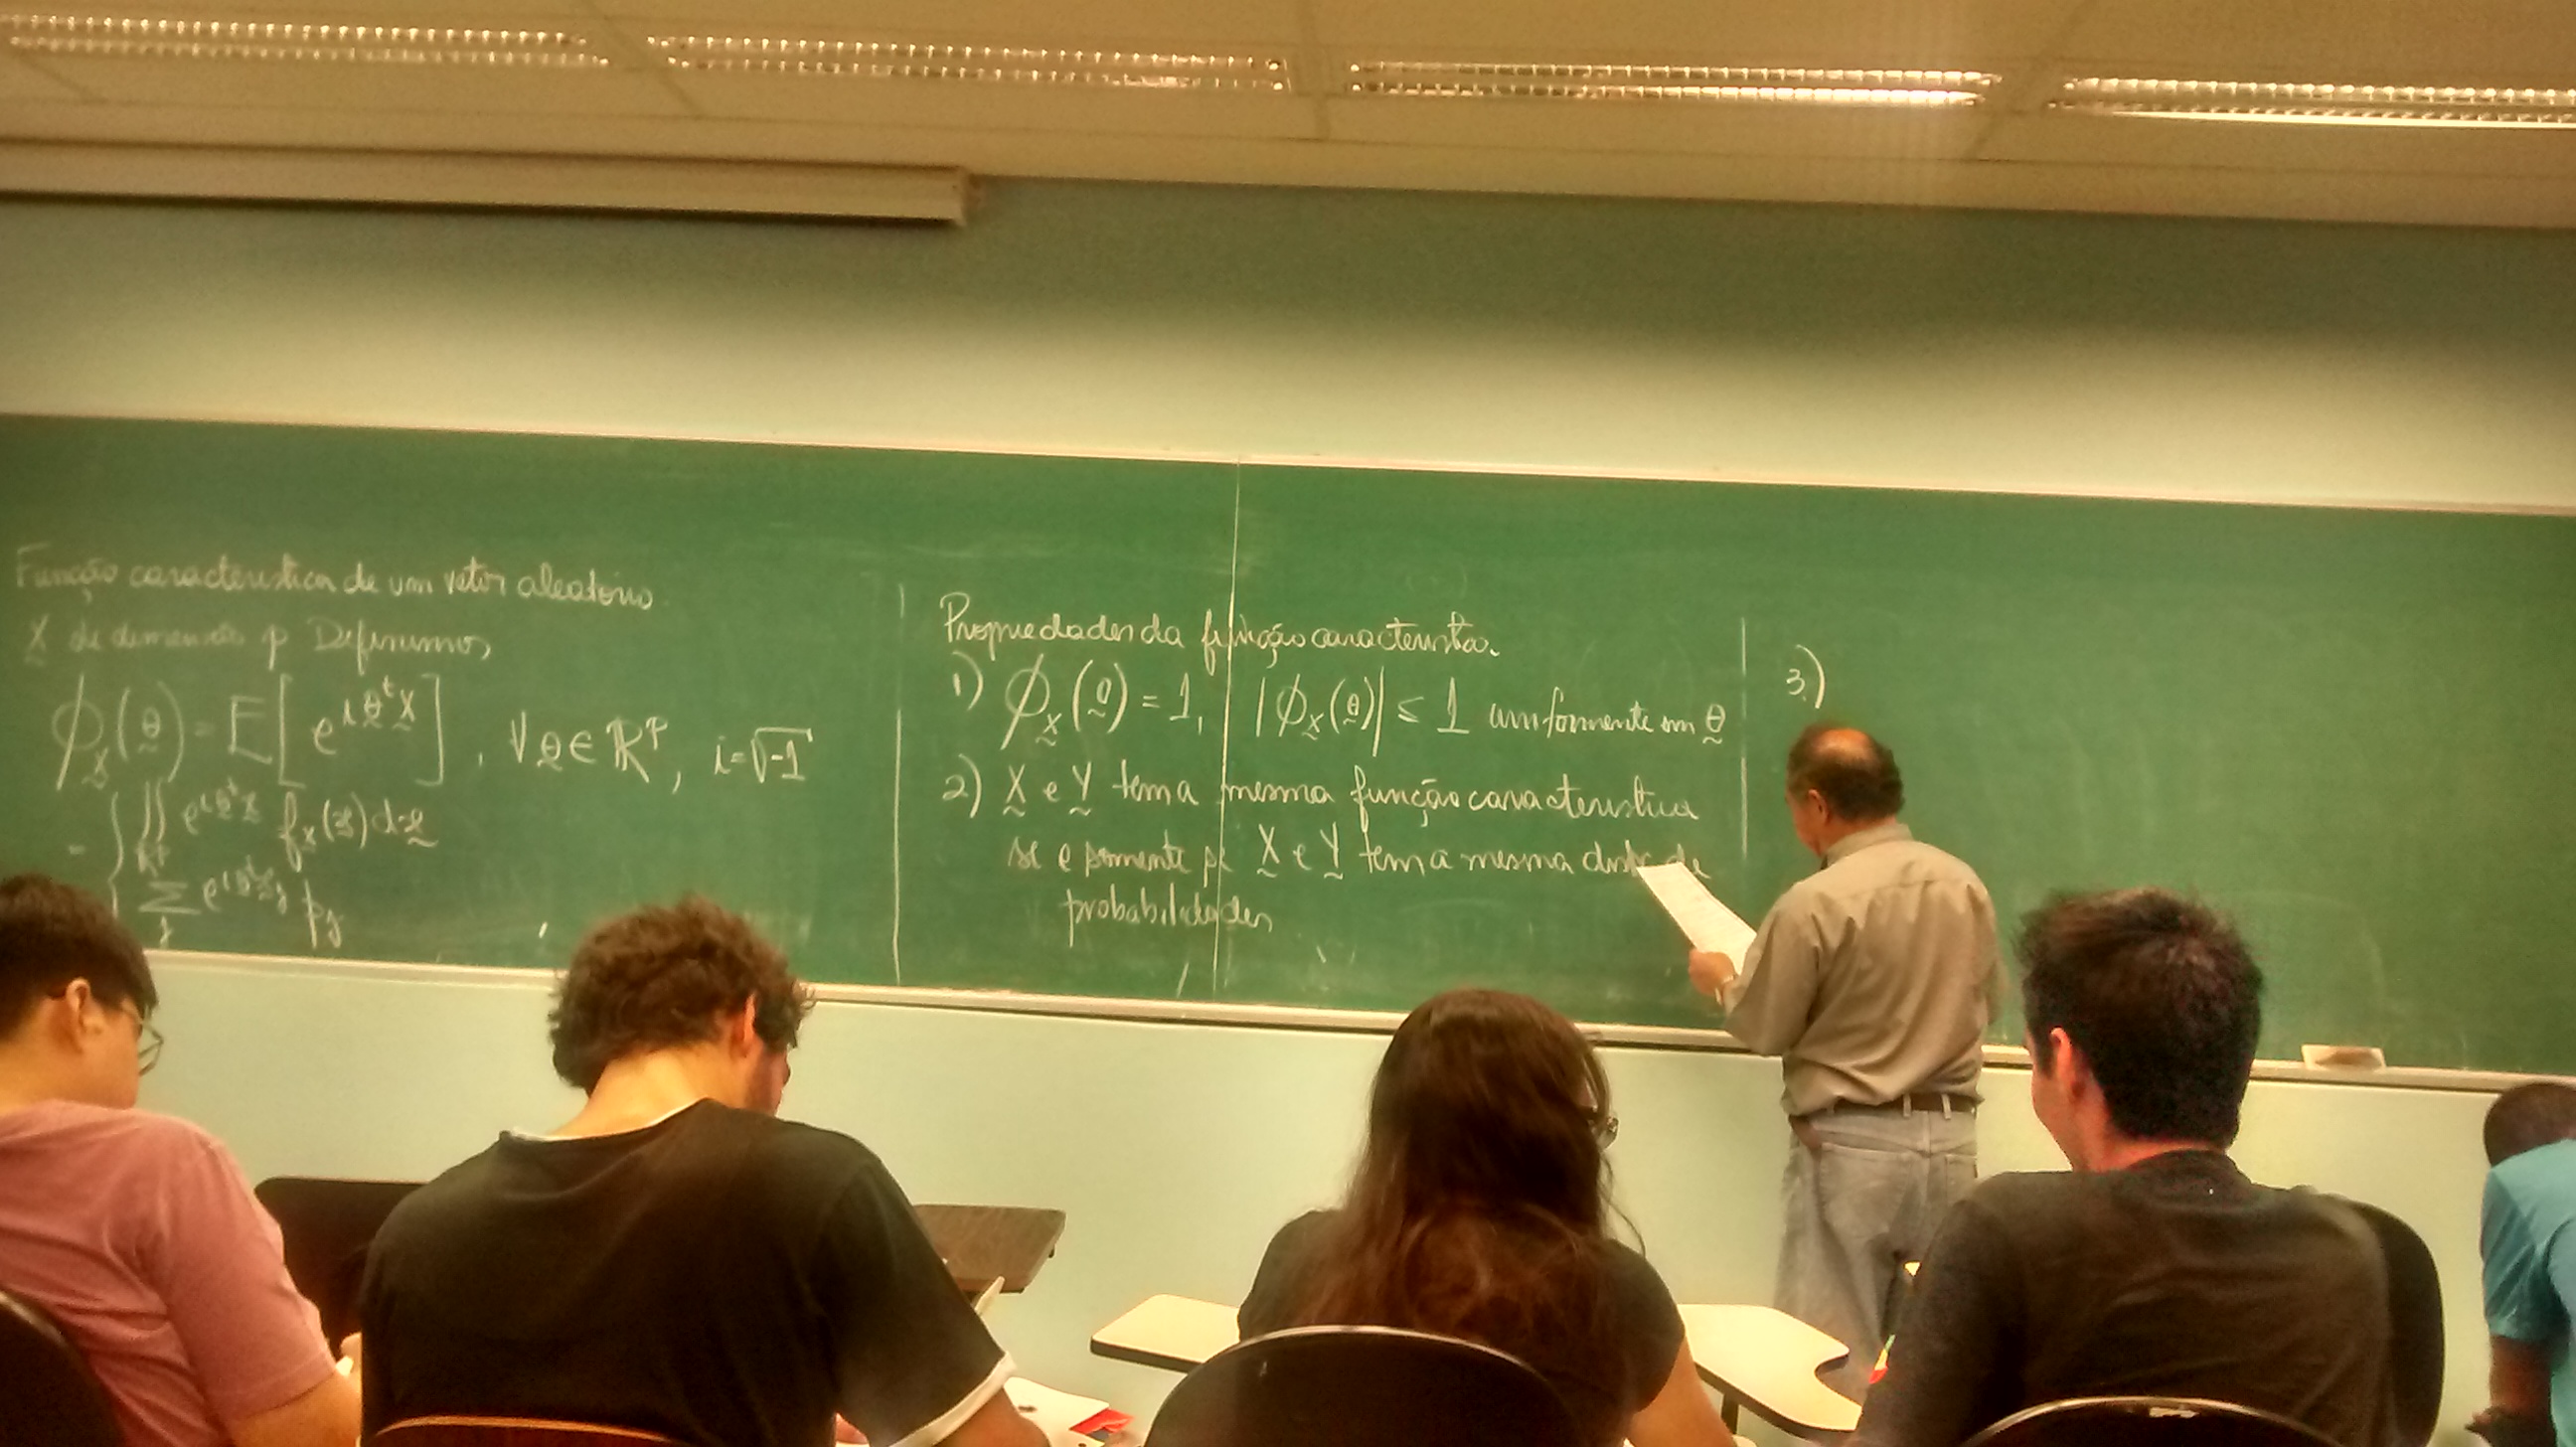 Função característica de um vetor aleatório.
X̰ de dimensão p Definimos,
ϕ_X̰(θ̰) = E[e^{iθ̰^t X̰}], ∀ θ̰ ∈ ℝ^p, i=√-1
= { ∬_{ℝ^p} e^{iθ̰^t x̰} f_X(x̰) dx̰
∑_j e^{iθ̰^t x̰_j} p_j
Propriedades da função característica.
1) ϕ_X̰(0̰) = 1, |ϕ_X̰(θ̰)| ≤ 1 uniformemente em θ̰
2) X̰ e Y̰ tem a mesma função característica
se e somente se X̰ e Y̰ tem a mesma dist. de
probabilidades
3)